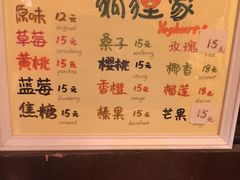 狐狸家
Yoghurt
原味 12元
original
草莓 15元
strawberry
黄桃 15元
peaches
蓝莓 15元
blueberry
焦糖 15元
caramel
桑子 15元
樱桃 15元
cherry
香橙 15元
orange
榛果 15元
hazelnut
玫瑰 15元
rose
椰香 18元
coconut
榴莲 18元
durian
芒果 15元
mango